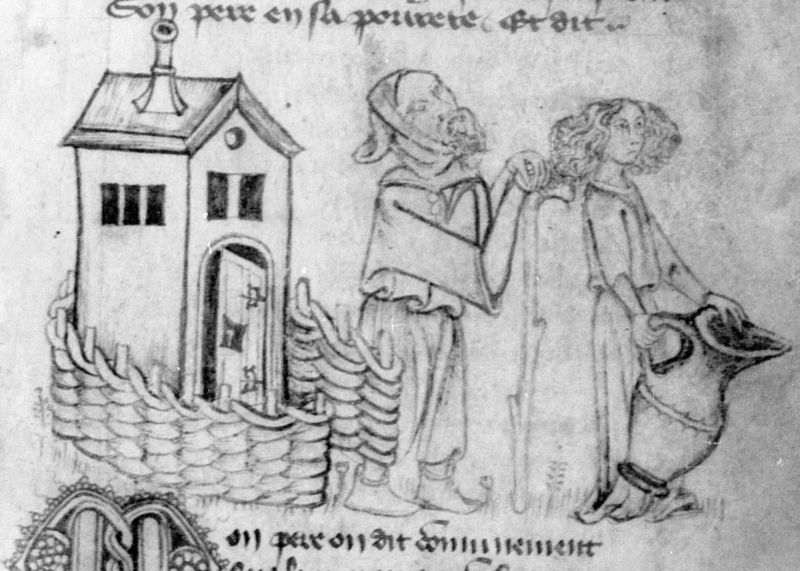 Son pere en sa pourete. Et dit
on pere on dit communement